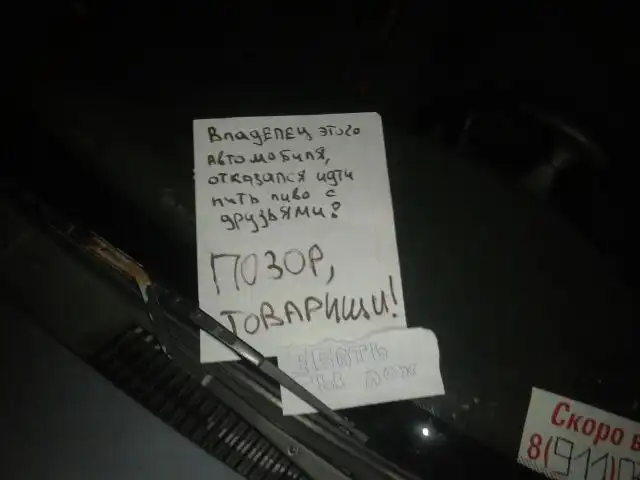 Владелец этого
автомобиля,
отказался идти
пить пиво с
друзьями?
ПОЗОР,
ТОВАРИЩИ!
ЕБАТЬ
ТЫ ЛОХ
Скоро в
8(911)